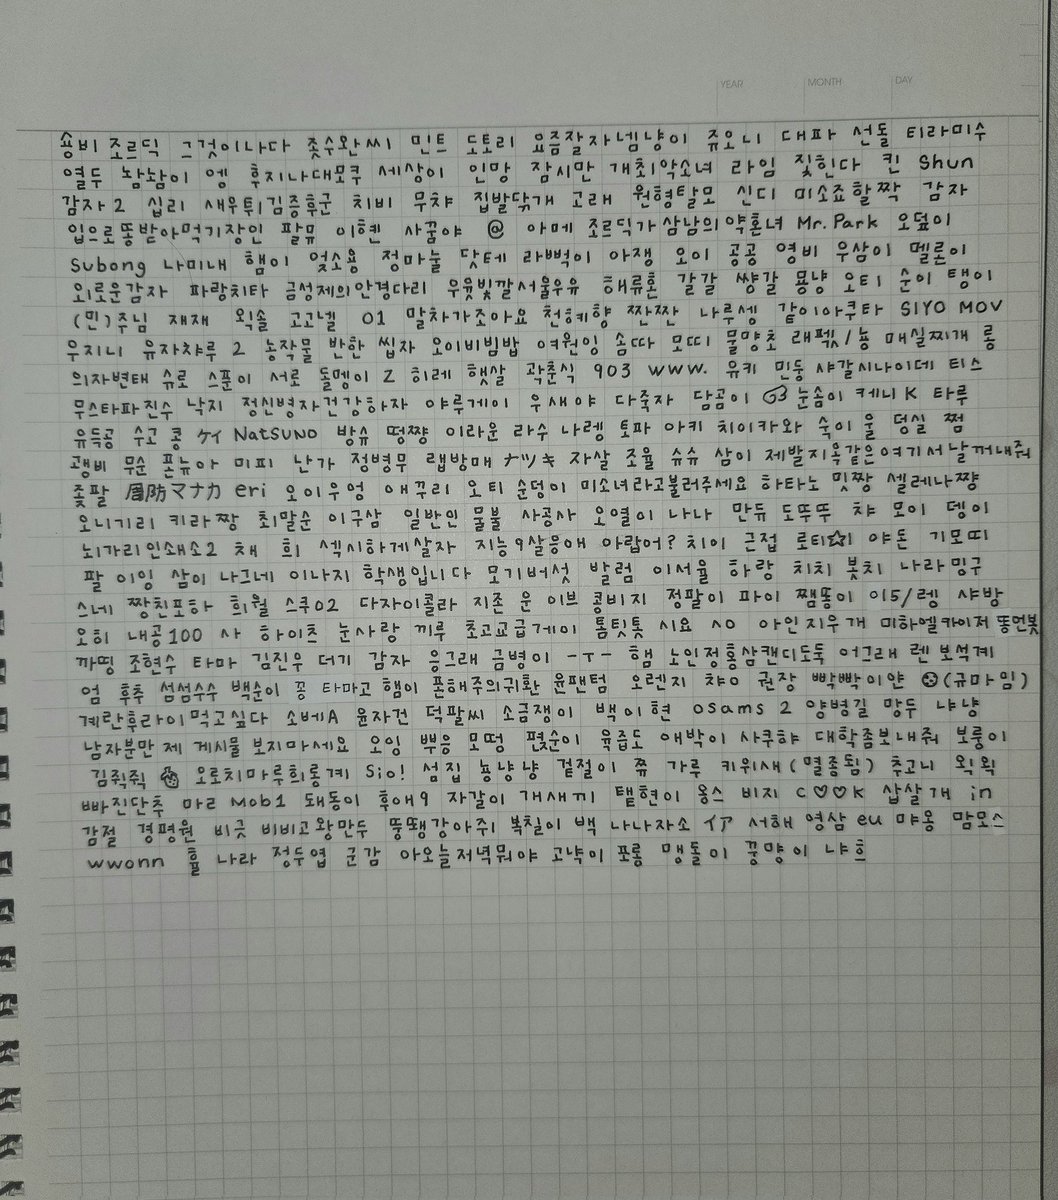 YEAR MONTH DAY
숑비 조르딕 그것이나다 좃수완씨 민트 도토리 요즘잘자넴냥이 쥬오니 대파 선돌 티라미수
열두 놤놤이 엥 후지나대모쿠 세상이 인망 잠시만 개최악소녀 라임 짖힌다 킨 Shun
감자2 십리 새우튀김증후군 치비 무챠 집발닦개 고래 원형탈모 신디 미소죠할짝 감자
입으로똥받아먹기장인 팔뮤 이현 사꿈야 @ 아메 조르딕가삼남의약혼녀 Mr.Park 오덮이
Subong 나미내 햄이 엊소용 정마눌 닷테 라뻑이 아쟁 오이 공공 영비 우삼이 멜론이
외로운감자 파랑치타 금성제의안경다리 우윳빛깔서울우유 해류혼 갈갈 쌍갈 용냥 오티 순이 탱이
(민)주님 재재 외솔 고고넬 01 말차가조아요 천혜향 짠짠 나루셍 같이아쿠타 SIYO MOV
우지니 유자챠루 2 농작물 반한 씹자 오이비빔밥 여원잉 솜따 모띠 물망초 래펙/뇽 매실찌개 롱
의자변태 슈로 스푼이 서로 돌멩이 Z 히레 햇살 곽춘식 903 www. 유키 민둥 샤갈시나이데 티스
무스타파진수 낙지 정신병자건강하자 야루게이 우새야 다죽자 담곰이 눈솜이 케니K 타루
유득공 수고 콩 ケイ NATSUNO 방슈 떵쨩 이라운 라수 나렝 토파 아키 치이카와 숙이 울 덩실 쩜
괭비 무순 폰뉴아 미피 난가 정병무 랩방매 ナツキ 자살 조율 슈슈 삼이 제발지옥같은여기서날꺼내줘
좆팔 周防マナカ eri 오이우엉 애꾸리 오티 순덩이 미소녀라고불러주세요 하타노 밋짱 셀레나쨩
오니기리 키라짱 최말순 이구삼 일반인 물불 사공사 오열이 나나 만듀 도뚜뚜 챠 모이 뎅이
뇌가리인쇄소2 채 희 섹시하게살자 지능9살응애 아랍어? 치이 근접 로티☆I 야돈 기모띠
팔 이잉 삼이 나그네 이나지 학생입니다 모기버섯 발럼 이서울 하랑 치치 봇치 나라밍구
스네 짱친포하 희월 스쿠02 다자이콜라 지존 운 이브 콩비지 정팔이 파이 쨈똥이 이5/렝 샤방
오히 내공100 사 하이츠 눈사랑 끼루 초고교급게이 톰팃톳 시요 ^0 아인지우개 미하엘카이저 똥먼봇
까띵 조현수 타마 김진우 더기 감자 응그래 금병이 -ㅜ- 햄 노인정홍삼캔디도둑 어그래 렌 보석계
엄 후추 섬섬수수 백순이 꽁 타마고 햄이 폰해주의귀환 윤팬텀 오렌지 챠0 권장 빡빡이얀 (규마임)
계란후라이먹고싶다 소베A 윤자건 덕팔씨 소금쟁이 백이현 osams 2 양병길 망두 냐냥
남자분만 제 게시물 보지마세요 오잉 뿌응 모띵 편순이 육즙도 애박이 사쿠햐 대학좀보내줘 보룽이
김줘줘 오로치마루희롱계 Sio! 섬집 뇽냥냥 겉절이 쮸 가루 키위새(멸종됨) 추고니 왹왹
빠진단추 마리 Mob1 돼동이 후애9 자갈이 개새끼 탵현이 옹스 비지 C♡♡K 삽살개 in
감절 경평원 비긋 비비고왕만두 뚱땡강아쥐 복칠이 백 나나자소 イア 서해 영삼 eu 먀옹 맘모스
wwonn 흘 나라 정두엽 군감 아오늘저녁뭐야 고냑이 포롱 맹돌이 꿍먕이 냐흐